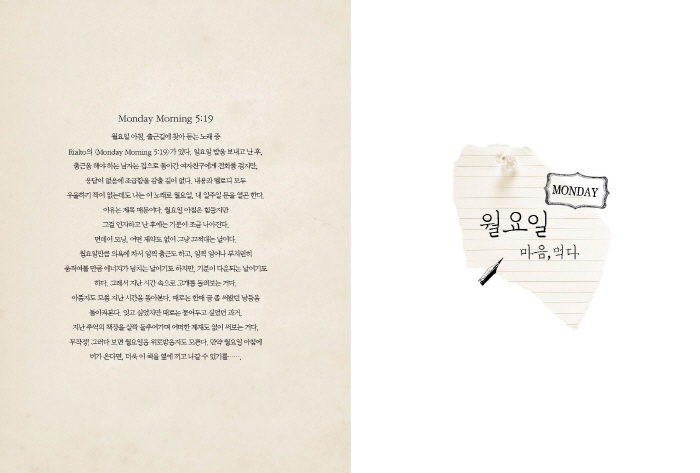 Monday Morning 5:19
월요일 아침, 출근길에 찾아 듣는 노래 중
Rialto의 〈Monday Morning 5:19〉가 있다. 일요일 밤을 보내고 난 후,
출근을 해야 하는 남자는 집으로 돌아간 여자친구에게 전화를 걸지만,
응답이 없음에 조급함을 감출 길이 없다. 내용과 멜로디 모두
우울하기 짝이 없는데도 나는 이 노래로 월요일, 내 일주일 문을 열곤 한다.
이유는 제목 때문이다. 월요일 아침은 힘들지만
그걸 인지하고 난 후에는 기분이 조금 나아진다.
먼데이 모닝, 어떤 제약도 없이 그냥 끄적대는 날이다.
월요일만큼 의욕에 차서 일찍 출근도 하고, 일찍 일어나 부지런히
움직여볼 만큼 에너지가 넘치는 날이기도 하지만, 기분이 다운되는 날이기도
하다. 그래서 지난 시간 속으로 고개를 돌려보는 거다.
아픔지도 모를 지난 시간을 돌아본다. 때로는 한때 글 좀 써봤던 날들을
돌이켜본다. 잊고 싶었지만 때로는 붙어두고 싶었던 과거,
지난 추억의 책장을 살짝 들추어가며 어떠한 제재도 없이 써보는 거다.
무작정! 그러다 보면 월요일을 위로받을지도 모른다. 만약 월요일 아침에
비가 온다면, 더욱 이 곡을 옆에 끼고 나갈 수 있기를……
MONDAY
월요일
마음, 먹다